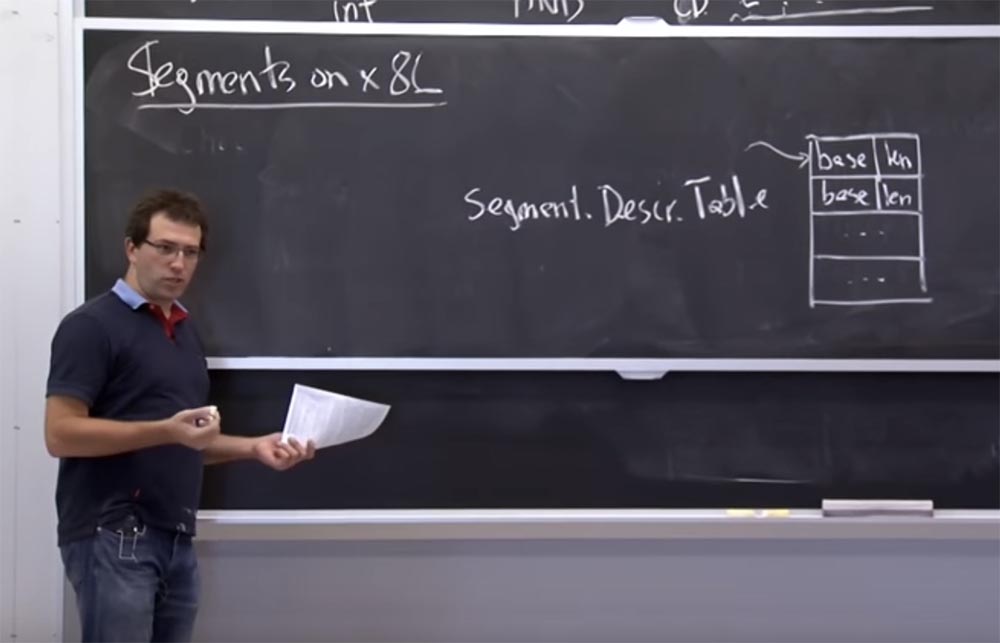 int AND CD
Segments on x86
Segment. Descr. Table
base len
base len
...
...